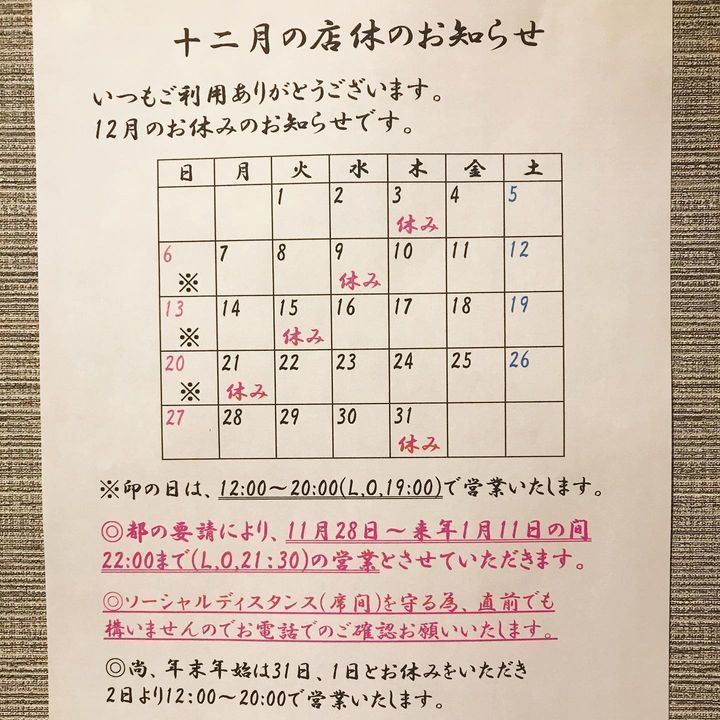 十二月の店休のお知らせ
いつもご利用ありがとうございます。
12月のお休みのお知らせです。
日 月 火 水 木 金 土
1 2 3 4 5
休み
6 7 8 9 10 11 12
※ 休み
13 14 15 16 17 18 19
※ 休み
20 21 22 23 24 25 26
※ 休み
27 28 29 30 31
休み
※印の日は、12:00～20:00(L,O,19:00)で営業いたします。
◎都の要請により、11月28日～来年1月11日の間
22:00まで(L,O,21:30)の営業とさせていただきます。
◎ソーシャルディスタンス(席間)を守る為、直前でも
構いませんのでお電話でのご確認お願いいたします。
◎尚、年末年始は31日、1日とお休みをいただき
2日より12:00～20:00で営業いたします。